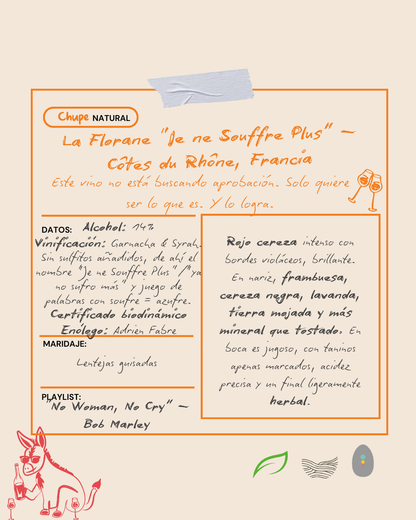 Chupe NATURAL
La Florane "Je ne Souffre Plus" –
Côtes du Rhône, Francia
Este vino no está buscando aprobación. Solo quiere
ser lo que es. Y lo logra.
DATOS: Alcohol: 14%
Vinificación: Garnacha & Syrah.
Sin sulfitos añadidos, de ahí el
nombre "Je ne Souffre Plus" ("ya
no sufro más" y juego de
palabras con soufre = azufre.
Certificado biodinámico
Enólogo: Adrien Fabre
MARIDAJE:
Lentejas guisadas
PLAYLIST:
"No Woman, No Cry" –
Bob Marley
Rojo cereza intenso con
bordes violáceos, brillante.
En nariz, frambuesa,
cereza negra, lavanda,
tierra mojada y más
mineral que tostado. En
boca es jugoso, con taninos
apenas marcados, acidez
precisa y un final ligeramente
herbal.